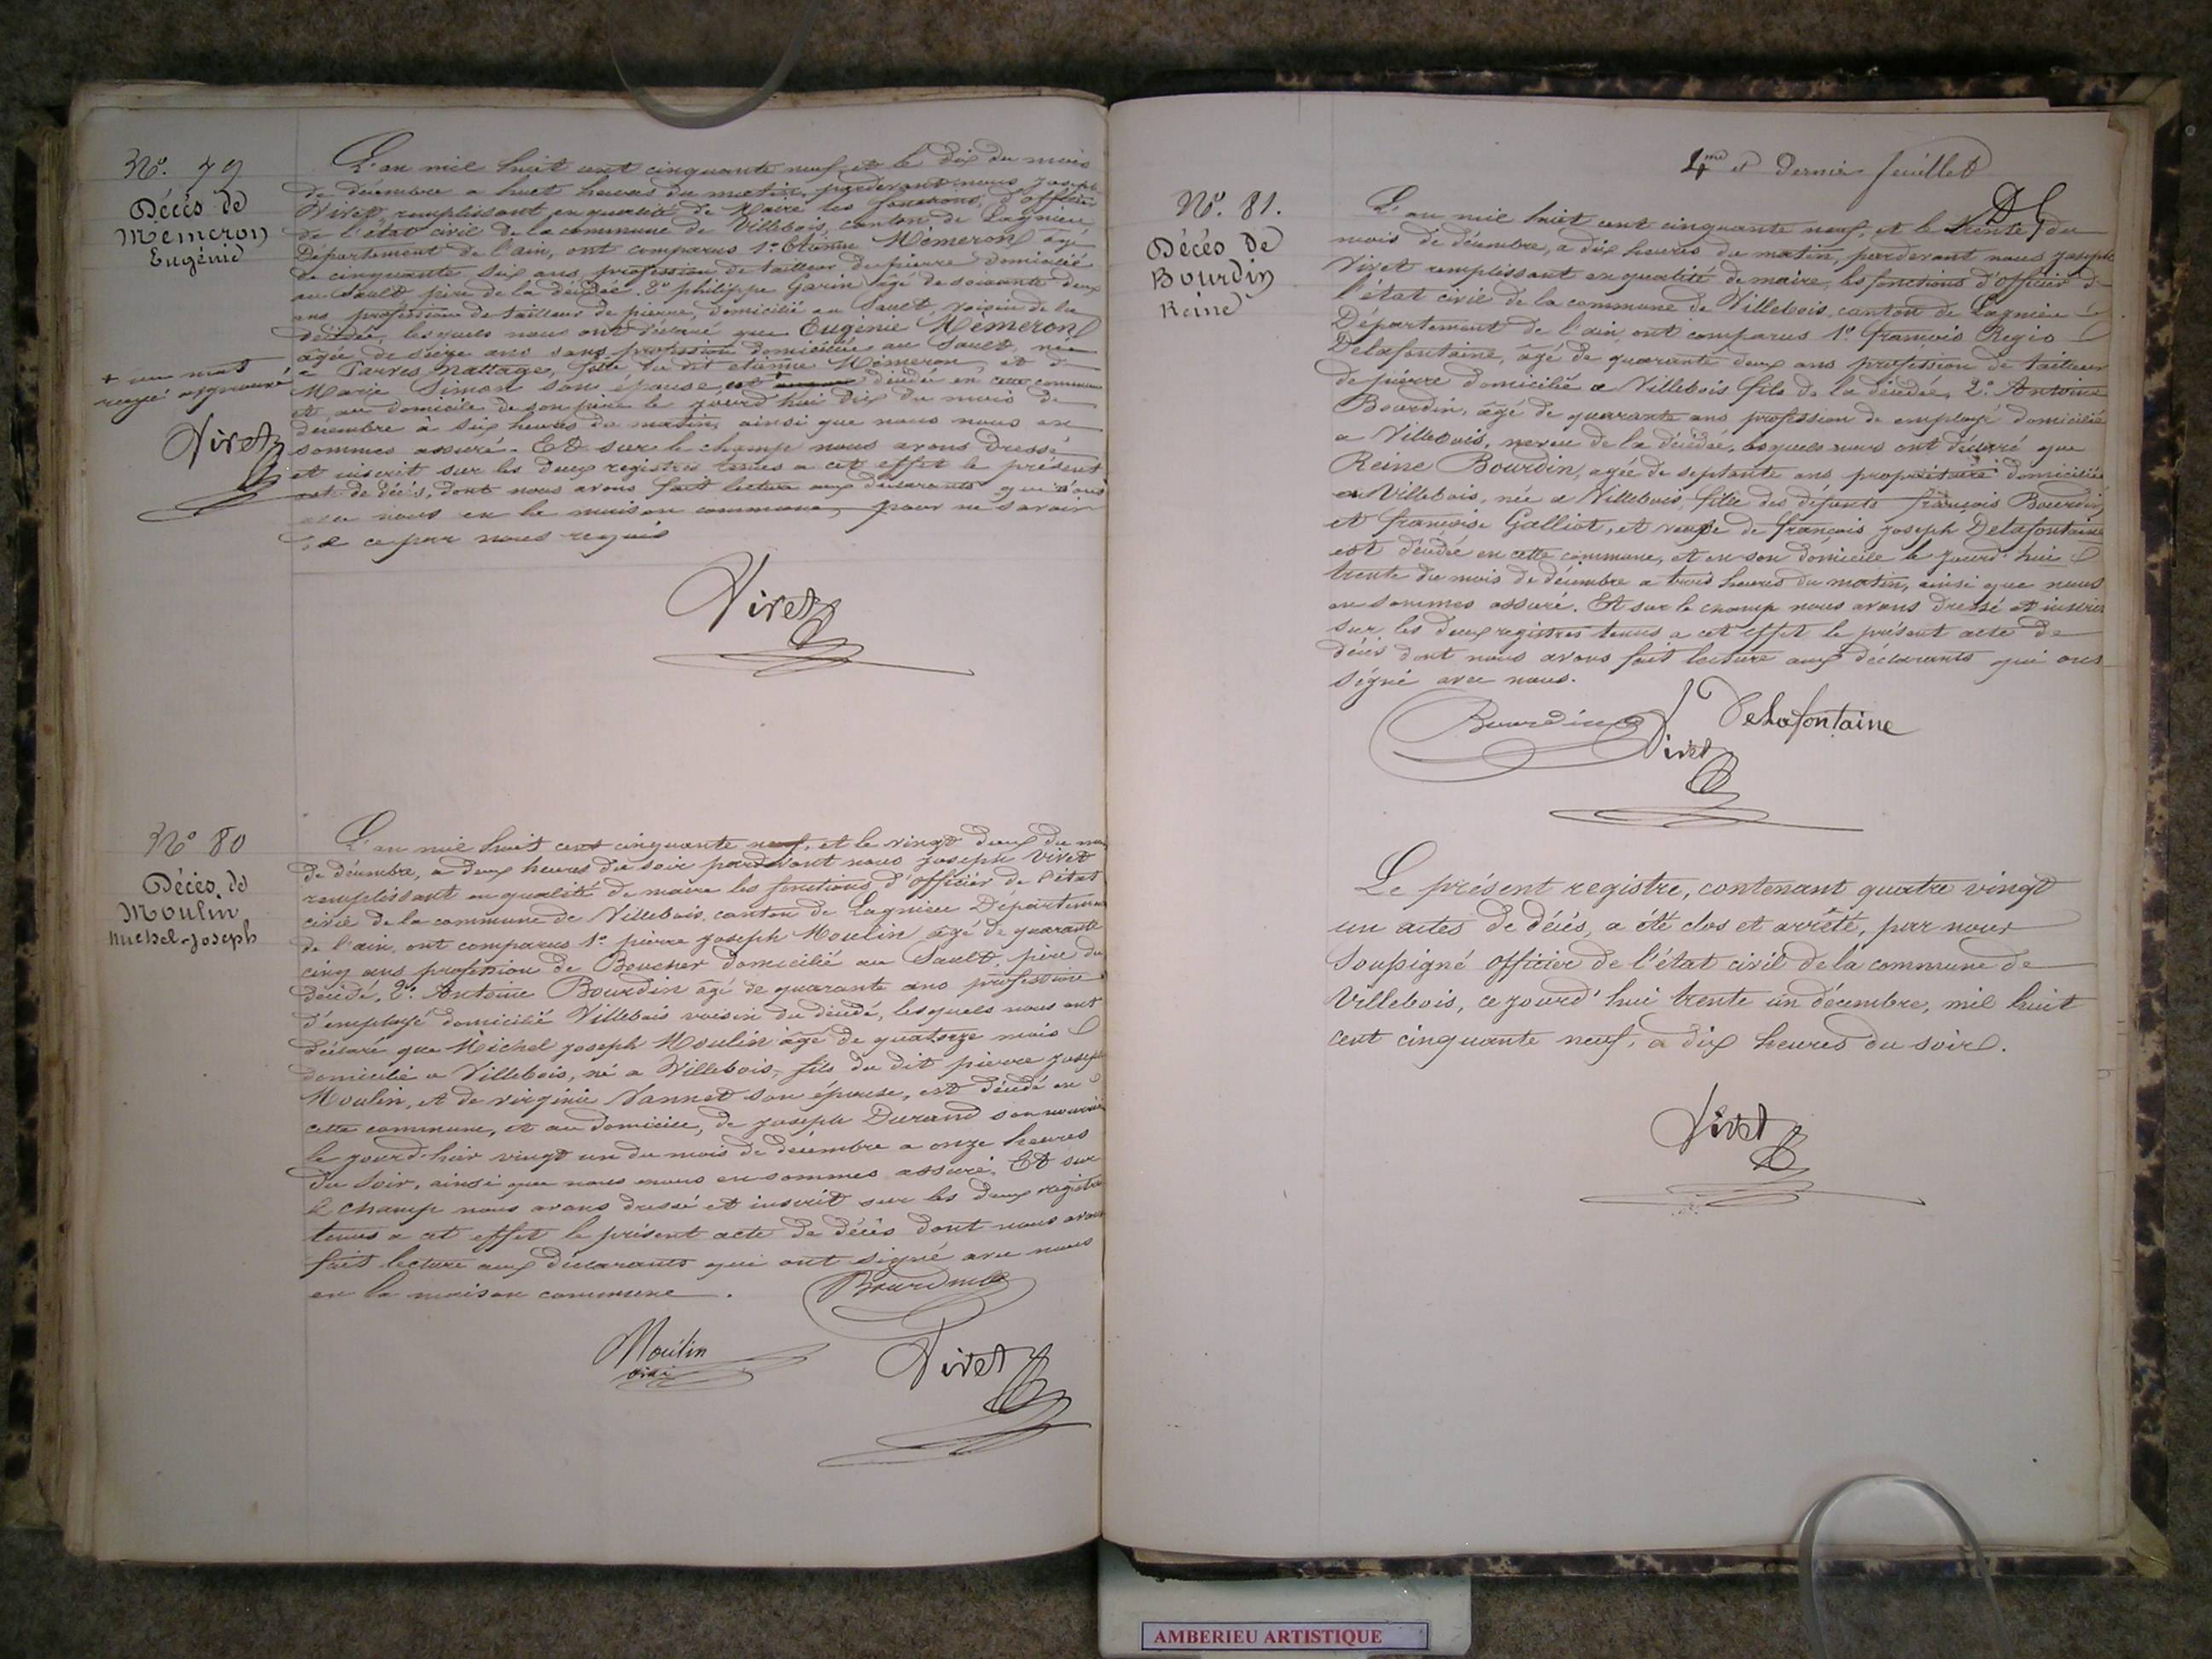 N°. 79
Décès de
Mémeron
Eugénie
L'an mil huit cent cinquante neuf et le dix du mois
de décembre a huit heures du matin, pardevant nous joseph
Viret, remplissant en qualité de Maire les fonctions d'officier
de l'état civil de la commune de Villebois, canton de Lagnieu
Département de l'ain, ont comparus 1° Etienne Mémeron âgé
de cinquante six ans, profession de tailleur de pierre domicilié
au Sault, père de la décédée. 2° philippe Garin âgé de soixante deux
ans profession de tailleur de pierre, domicilié au Sault, voisin de la
décédée, lesquels nous ont déclaré que Eugénie Mémeron
âgée de seize ans sans profession domiciliée au Sault, née
a Parves Nattage, fille du dit etienne Mémeron, et de
Marie Simon son épouse, est décédée en cette commune
et au domicile de son père le jourd'hui dix du mois de
décembre à six heures du matin, ainsi que nous nous en
sommes assuré. Et sur le champ nous avons dressé
et inscrit sur les deux registres tenus a cet effet le présent
acte de décès, dont nous avons fait lecture aux déclarants qui n'ont
avec nous en la maison commune, pour ne savoir
de ce par nous requis
+ un mot
rayé approuvé
Viret
Viret
N° 80
Décès de
Moulin
Michel-Joseph
L'an mil huit cent cinquante neuf, et le vingt deux du mois
de décembre, a deux heures du soir pardevant nous joseph Viret
remplissant en qualité de maire les fonctions d'officier de l'état
civil de la commune de Villebois, canton de Lagnieu Département
de l'ain, ont comparus 1° pierre joseph Moulin âgé de quarante
cinq ans profession de Boucher domicilié au Sault, père du
décédé, 2° Antoine Bourdin âgé de quarante ans profession
d'employé domicilié Villebois voisin du décédé, lesquels nous ont
déclaré que Michel joseph Moulin âgé de quatorze mois
domicilié a Villebois, né a Villebois, fils du dit pierre joseph
Moulin, et de virginie Vannet son épouse, est décédé en
cette commune, et au domicile, de joseph Durand son nourricier
le jourd'hier vingt un du mois de décembre a onze heures
du soir, ainsi que nous nous en sommes assuré. Et sur
le champ nous avons dressé et inscrit sur les deux registres
tenus a cet effet le présent acte de décès dont nous avons
fait lecture aux déclarants qui ont signé avec nous
en la maison commune.
Bourdin
Moulin
Viret
4me et Dernier feuillet
N°. 81.
Décès de
Bourdin
Reine
L'an mil huit cent cinquante neuf, et le trente du
mois de décembre, a dix heures du matin, pardevant nous joseph
Viret remplissant en qualité de maire, les fonctions d'officier de
l'état civil de la commune de Villebois, canton de Lagnieu
Département de l'ain, ont comparus 1° françois Regis
Delafontaine, âgé de quarante deux ans profession de tailleur
de pierre domicilié a Villebois fils de la décédée, 2° Antoine
Bourdin, âgé de quarante ans profession de employé domicilié
a Villebois, neveu de la décédée, lesquels nous ont déclaré que
Reine Bourdin, agée de septante ans propriétaire domiciliée
a Villebois, née a Villebois, fille des défunts françois Bourdin
et françoise Galliot, et veuve de françois joseph Delafontaine
est décédée en cette commune, et en son domicile le jourd'hui
trente du mois de décembre a trois heures du matin, ainsi que nous
en sommes assuré. Et sur le champ nous avons dressé et inscrit
sur les deux registres tenus a cet effet le présent acte de
décès dont nous avons fait lecture aux déclarants qui ont
signé avec nous.
Bourdin Delafontaine
Viret
Le présent registre, contenant quatre vingt
un actes de décès, a été clos et arrêté, par nous
soussigné officier de l'état civil de la commune de
Villebois, ce jourd'hui trente un décembre, mil huit
cent cinquante neuf, a dix heures du soir.
Viret
AMBERIEU ARTISTIQUE